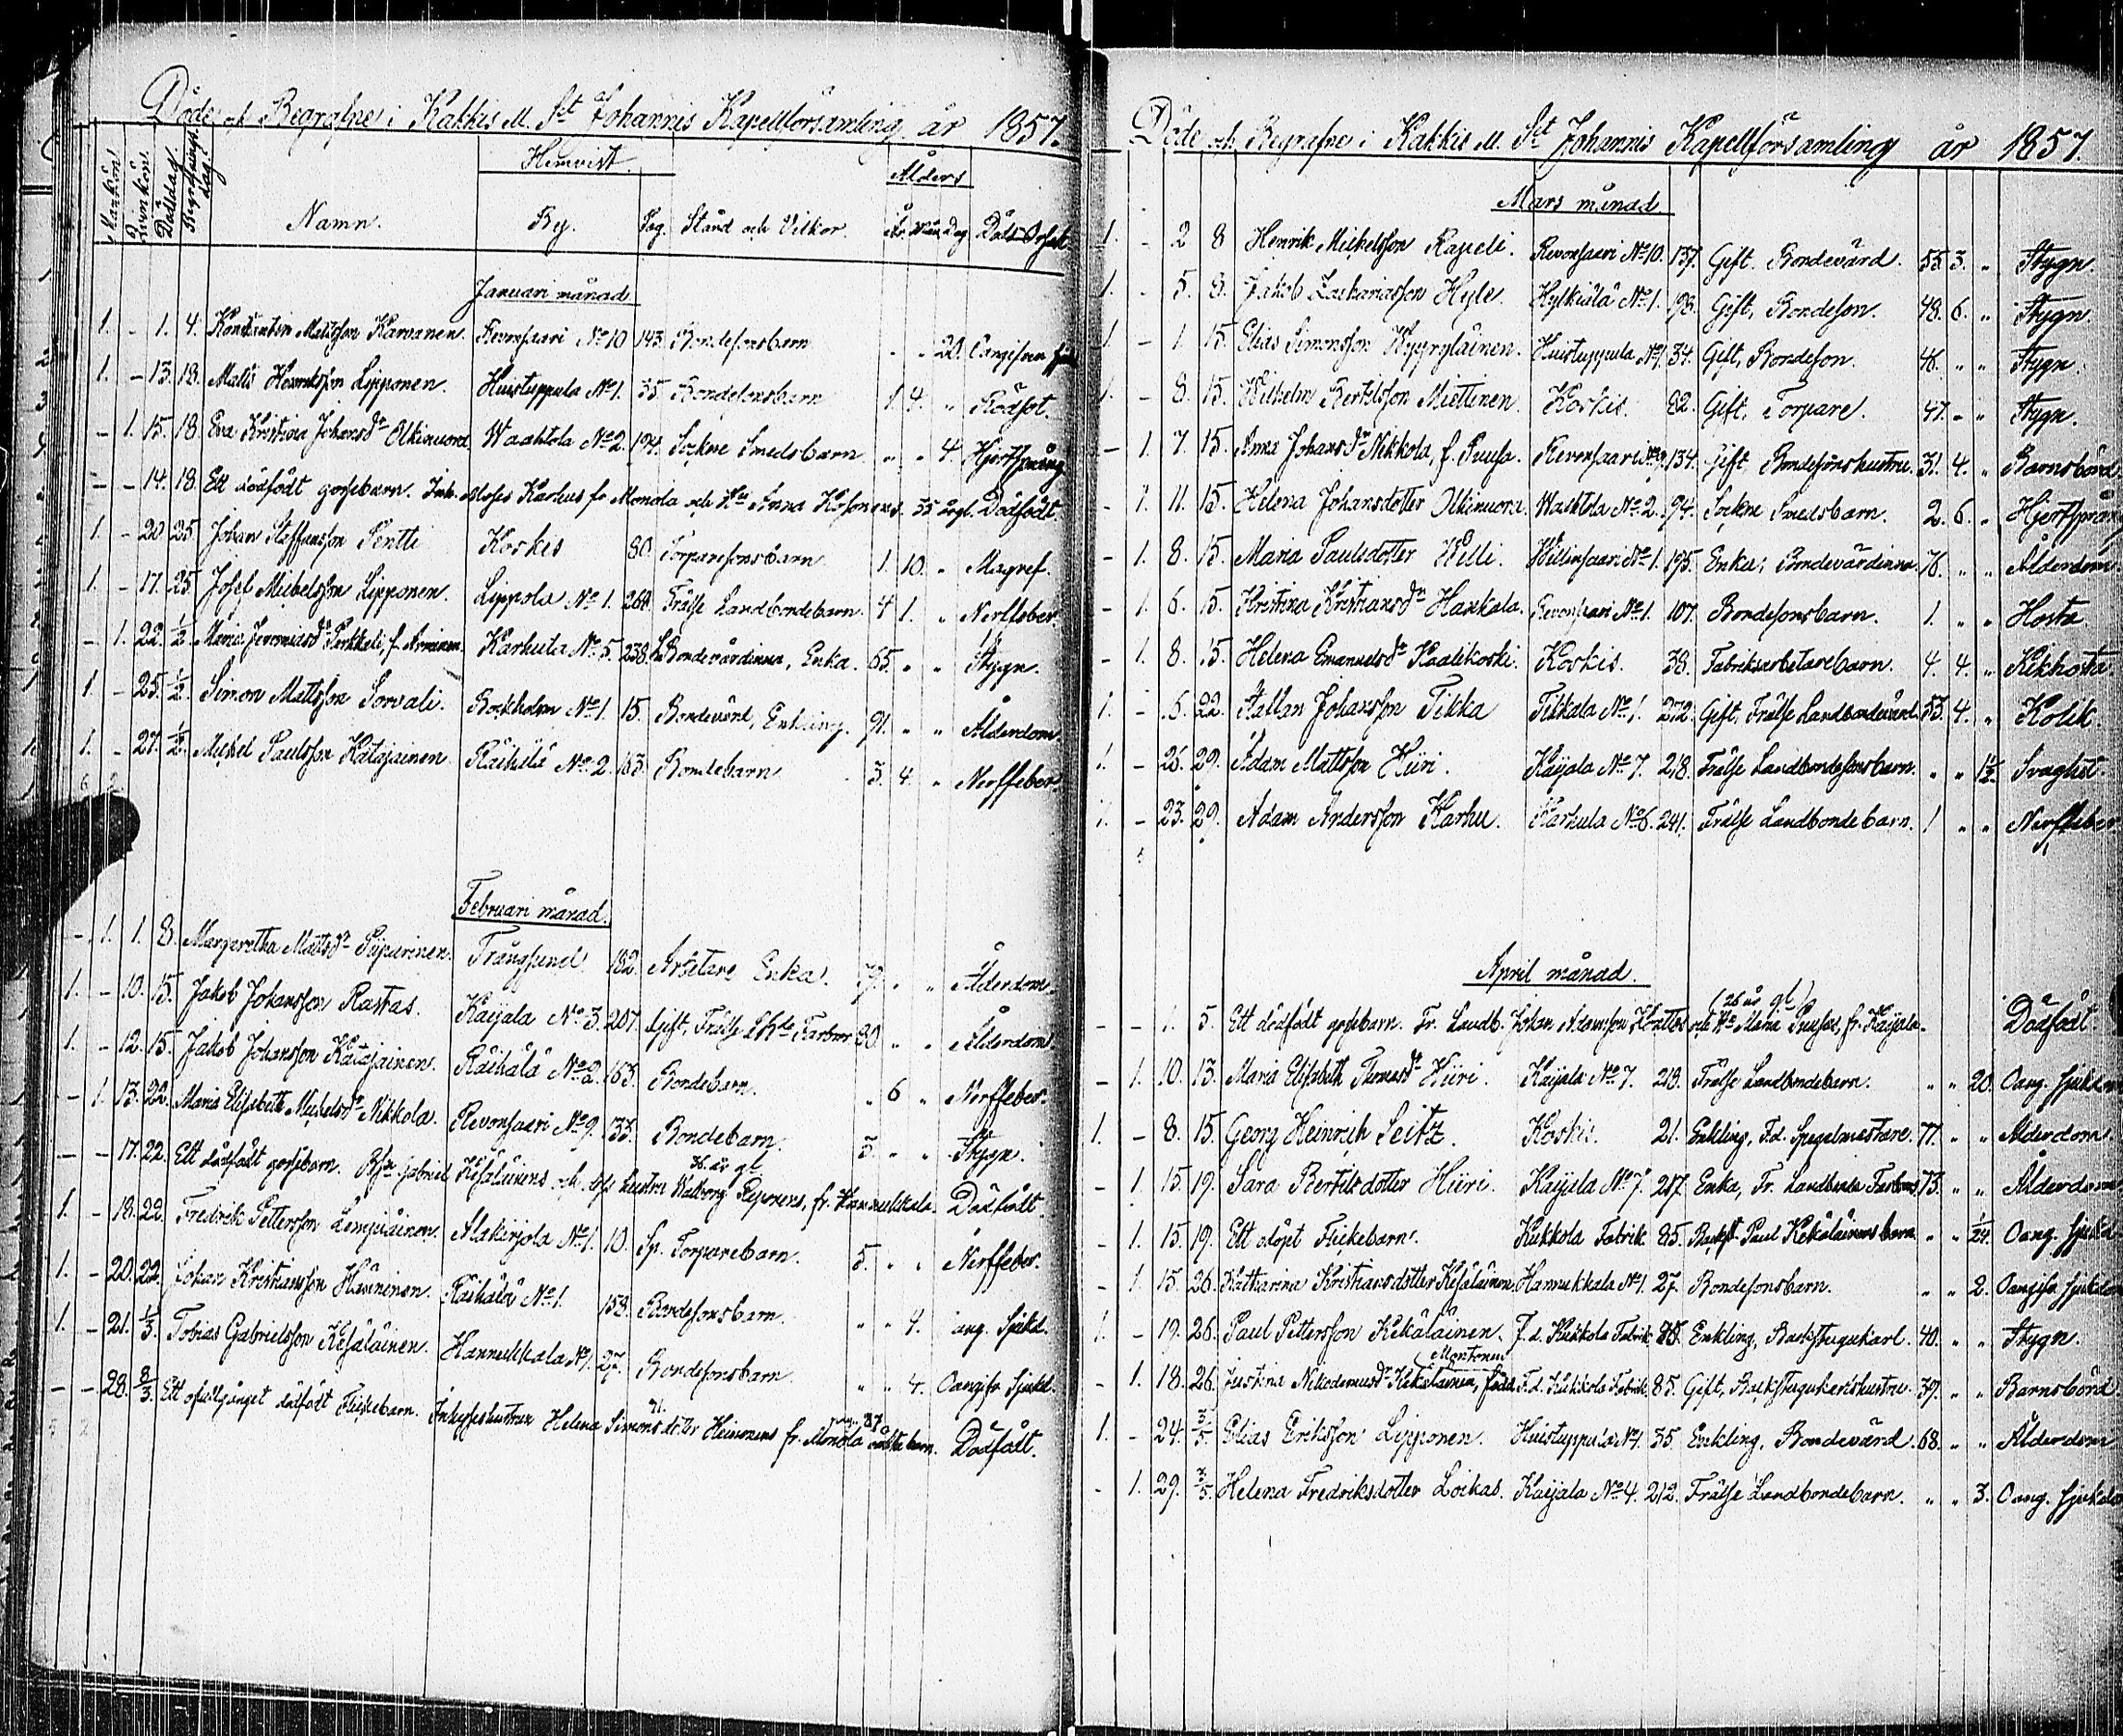 Döde och Begrafne i Kakkis M. S:t Johannis Kapellförsamling år 1857.
Mankön. Qvinkön. Dödsdag. Begrafnings dag. Namn. Hemvist. By. Pag. Stånd och Vilkor. Ålders År. Mån. Dag. Döds Orsak
Januari månad
1. - 1. 4. Konstantin Mattsson Karvanen. Revonsaari No 10 143. Bondesonsbarn " " 20. Oangifven
1. - 13. 18. Matts Henriksson Lipponen. Huistuppula No 1. 35. Bondesonsbarn 1 4. " Rödsot.
- 1. 15. 18. Eva Kristina Johansdr Olkinuora Waahtola No 2. 194. Sockne Smedsbarn " " 4. Hjertsprång
- - 14. 18. Ett dödfödt gossebarn. Inh. Moses Karhus fr Monola och Hu Anna 35 år gl. Dödfödt.
1. - 20 25. Johan Staffansson Pentti Koskis 80 Torparesonsbarn 1. 10. " Magref.
1. - 17. 25. Josef Michelsson Lipponen. Lippola No 1. 264. Frälse Landbondebarn. 4 1. " Nerffeber
- 1. 22. 1/2. Maria Jeremiasdr Perkkeli, f. Karhula No 5. 238. Bondevärdinna, Enka. 65. " " Stygn.
1. - 25. 1/2. Simon Mattsson Sorvali. Bockholm No 1. 15. Bondevärd, Enkling. 91. " " Ålderdom
1. - 27. 1/2. Michel Paulsson Katajainen Räihälä No 2. 163. Bondebarn 3. 4. " Nerffeber.
6 2
Februari månad.
- 1. 1. 8. Margaretha Mattsdr Piipurinen. Trångsund 182. Arbetare Enka. 79. " " Ålderdom.
1. - 10. 15. Jakob Johansson Rastas. Kaijala No 3. 207. Gift, Frälse Farbror 80 " " Ålderdom.
1. - 12. 15. Jakob Johansson Katajainen. Räihälä No 2. 163. Bondebarn. " 6 " Nerffeber.
- 1. 13. 22. Maria Elisabeth Michelsdr Nikkola. Revonsaari No 9. 133. Bondebarn. 3. " " Stygn.
- - 17. 22. Ett dödfödt gossebarn. Gabriel Kesäläinens och dess hustru Walborg Reponens, 36 år gl. fr. Hannukkala. Dödfödt.
1. - 18. 22. Fredrik Pettersson Lempiäinen. Alakirjola No 1. 10. Sp. Torparebarn. 5. " " Nerffeber.
1. - 20. 22. Johan Kristiansson Hänninen. Räihälä No 1. 158. Bondesonsbarn. " " 4. ang. Sjukd.
1. - 21. 1/3. Tobias Gabrielsson Kesäläinen. Hannukkala No 1. 27. Bondesonsbarn. " " 4. Oangifv. Sjukd.
- - 28. 8/3. Ett ofullgånget dödfödt Flickebarn. Inhyseshustrun Helena Simonsdotter Heinonens fr. Monola Dödfödt.
Döde och Begrafne i Kakkis M. S:t Johannis Kapellförsamling år 1857.
Mars månad.
1. - 2 8 Henrik Michelsson Rapeli. Revonsaari No 10. 137. Gift. Bondevärd. 55. 3. " Stygn.
1. - 5. 8. Jakob Zachariasson Hyle. Hylkiälä No 1. 198. Gift, Bondeson. 48. 6. " Stygn.
1 - 1. 15. Elias Simonsson Kyyryläinen. Huistuppula No 1. 34. Gift, Bondeson. 46. " " Stygn.
1. - 8. 15. Wilhelm Bertilsson Miettinen. Koskis. 82. Gift, Torpare. 47. " " Stygn.
- 1. 7. 15. Anna Johansdr Nikkola, f. Puusa. Revonsaari No 9. 134. Gift, Bondesonshustru. 31. 4. " Barnsbörd
- 1. 11. 15. Helena Johansdotter Olkinuora. Waahtola No 2. 94. Sockne Smedsbarn. 2. 6. " Hjertsprång
- 1. 8. 15. Maria Paulsdotter Willi. Willinsaari No 1. 195. Enka, Bondevärdinna. 76. " " Ålderdom
- 1. 6. 15. Kristina Kristiansdr Haskala. Revonsaari No 1. 107. Bondesonsbarn. 1. " " Hosta.
- 1. 8. 15. Helena Emanuelsdr Kaalikoski. Koskis. 38. Fabriksarbetarebarn. 4. 4. " Kikhosta
1. - 5. 22. Staffan Johansson Tikka Tikkala No 1. 272. Gift, Frälse Landbondevärd. 53. 4. " Kolik.
1. - 26. 29. Adam Mattsson Hiiri. Kaijala No 7. 218. Frälse Landbondesonsbarn. " " 1/2. Svaghet.
1. - 23. 29. Adam Andersson Karhu. Karhula No 6. 241. Frälse Landbondebarn. 1 " " Nerffeber
April månad.
- - 1. 5. Ett dödfödt gossebarn. Fr. Landb. Johan Adamsson och Hu Maria (26 år gl) fr. Kaijala. Dödfödt
- 1. 10. 13. Maria Elisabeth Thomasdr Hiiri. Kaijala No 7. 218. Frälse Landbondebarn. " " 20. Oang. sjukdom
1. - 8. 15. Georg Heinrich Seitz. Koskis. 21. Enkling, F.d. Spegelmästare. 77. " " Ålderdom.
- 1 15. 19. Sara Bertilsdotter Hiiri. Kaijala No 7. 217. Enka, Fr. Landbonde 73. " " Ålderdom
- 1. 15. 19. Ett odöpt Flickebarn. Kukkola Fabrik 85. Backst. Paul Kekäläinens barn " " 1/24. Oang. sjukd
- 1. 15. 26. Katharina Kristiansdotter Kesäläinen Hannukkala No 1. 27. Bondesonsbarn. " " 2. Oangifv. sjukdom
1. - 19. 26. Paul Pettersson Kekäläinen. F.d. Kukkola Fabrik. 85. Enkling, Backstugukarl. 40. " " Stygn.
- 1. 18. 26. Justina Nikodemusdr Kekäläinen, född Montonen F.d. Kukkola Fabrik. 85. Gift, Backstugukarlshustru. 39. " " Barnsbörd
1. - 24. 3/5. Elias Eriksson Lipponen. Huistuppula No 1. 35. Enkling, Bondevärd. 68. " " Ålderdom
- 1. 29. 3/5. Helena Fredriksdotter Loikas. Kaijala No 4. 212. Frälse Landbondebarn. " " 3. Oang. sjukdom